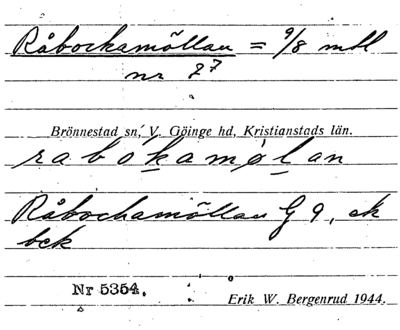 Råbockamöllan = 9/8 mtl
nr 27
Brönnestad sn, V. Göinge hd, Kristianstads län.
rabokamølan
Råbockamöllan G 9, ek
bck
Nr 5354.
Erik W. Bergenrud 1944.